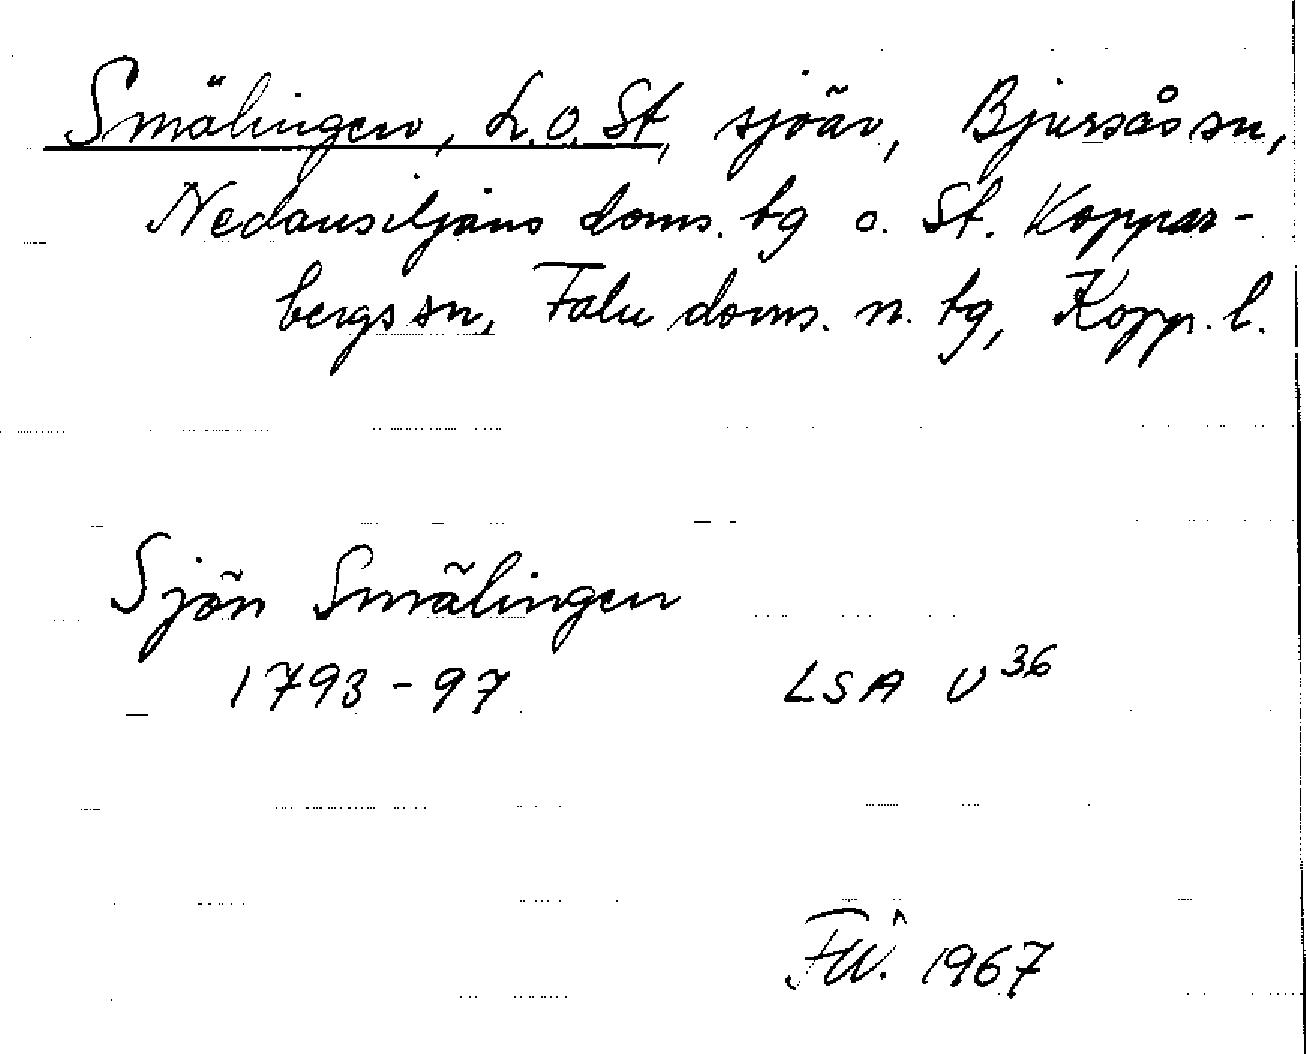 Smälingen, L. o. St, sjöar, Bjursås sn,
Nedansiljans doms. tg o. St. Koppar-
bergs sn, Falu doms. n. tg, Kopp. l.
Sjön Smälingen
1793-97 LSA U36
1967